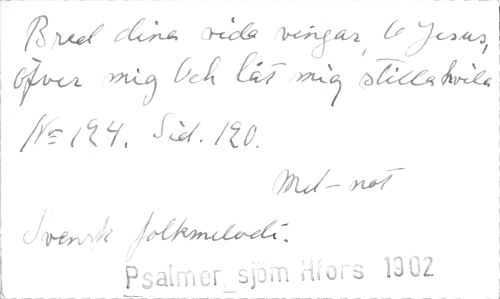 Bred dina vida vingar, O Jesus,
öfver mig Och låt mig stilla hvila
No 124. Sid. 120.
Mel-not
Svensk folkmelodi.
Psalmer_sjöm Hfors 1902